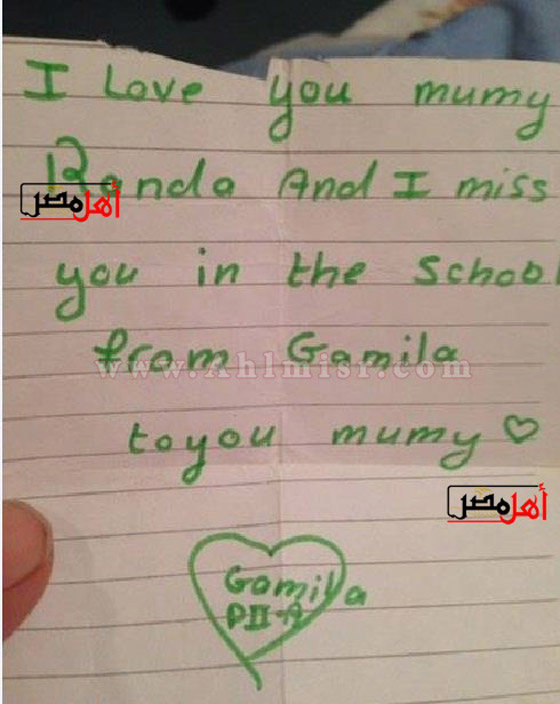 I Love you mumy
Randa And I miss
أهل مصر
you in the school
from Gamila
www.Ahlmisr.com
to you mumy ♡
أهل مصر
Gamila
PII-A